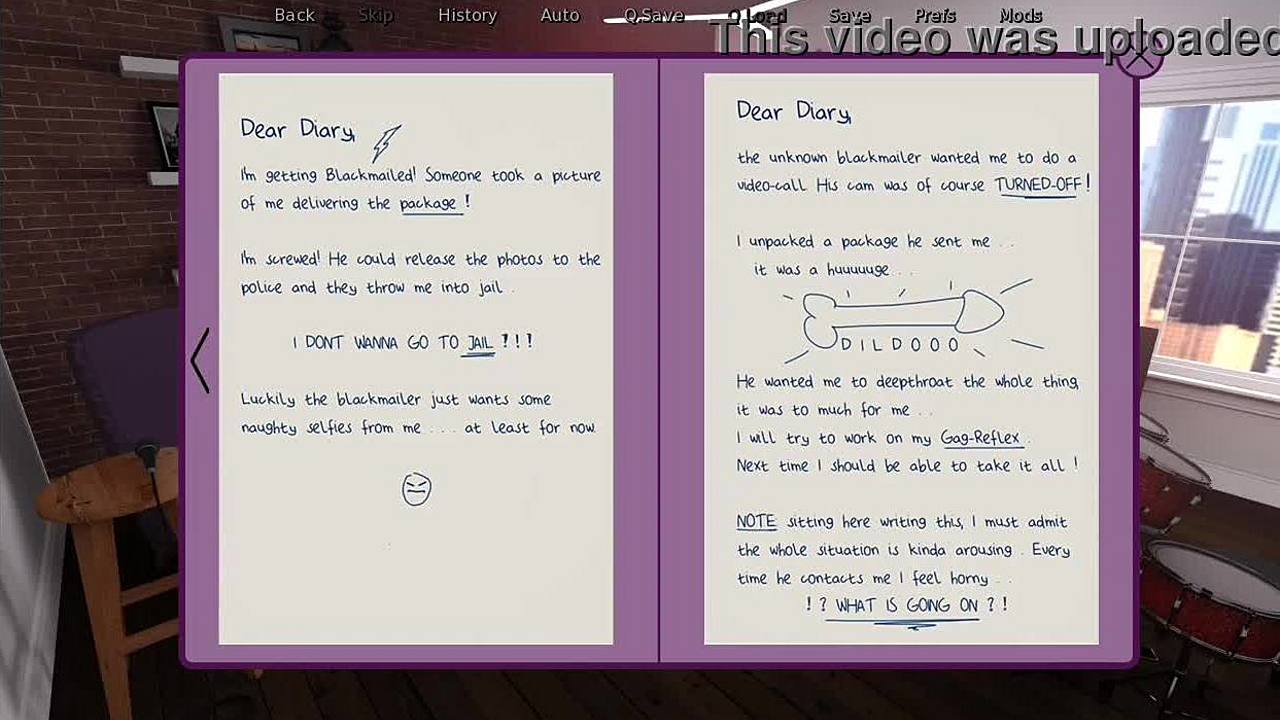 Back Skip History Auto Q.Save Q.Load Save Prefs Mods
This video was uploaded
Dear Diary,
I'm getting Blackmailed! Someone took a picture
of me delivering the package !
I'm screwed! He could release the photos to the
police and they throw me into jail .
I DONT WANNA GO TO JAIL !!!
Luckily the blackmailer just wants some
naughty selfies from me . . . at least for now.
Dear Diary,
the unknown blackmailer wanted me to do a
video-call. His cam was of course TURNED-OFF!
I unpacked a package he sent me . .
it was a huuuuge . .
DILDOOO
He wanted me to deepthroat the whole thing,
it was to much for me . .
I will try to work on my Gag-Reflex .
Next time I should be able to take it all !
NOTE sitting here writing this, I must admit
the whole situation is kinda arousing . Every
time he contacts me I feel horny . .
!? WHAT IS GOING ON ?!